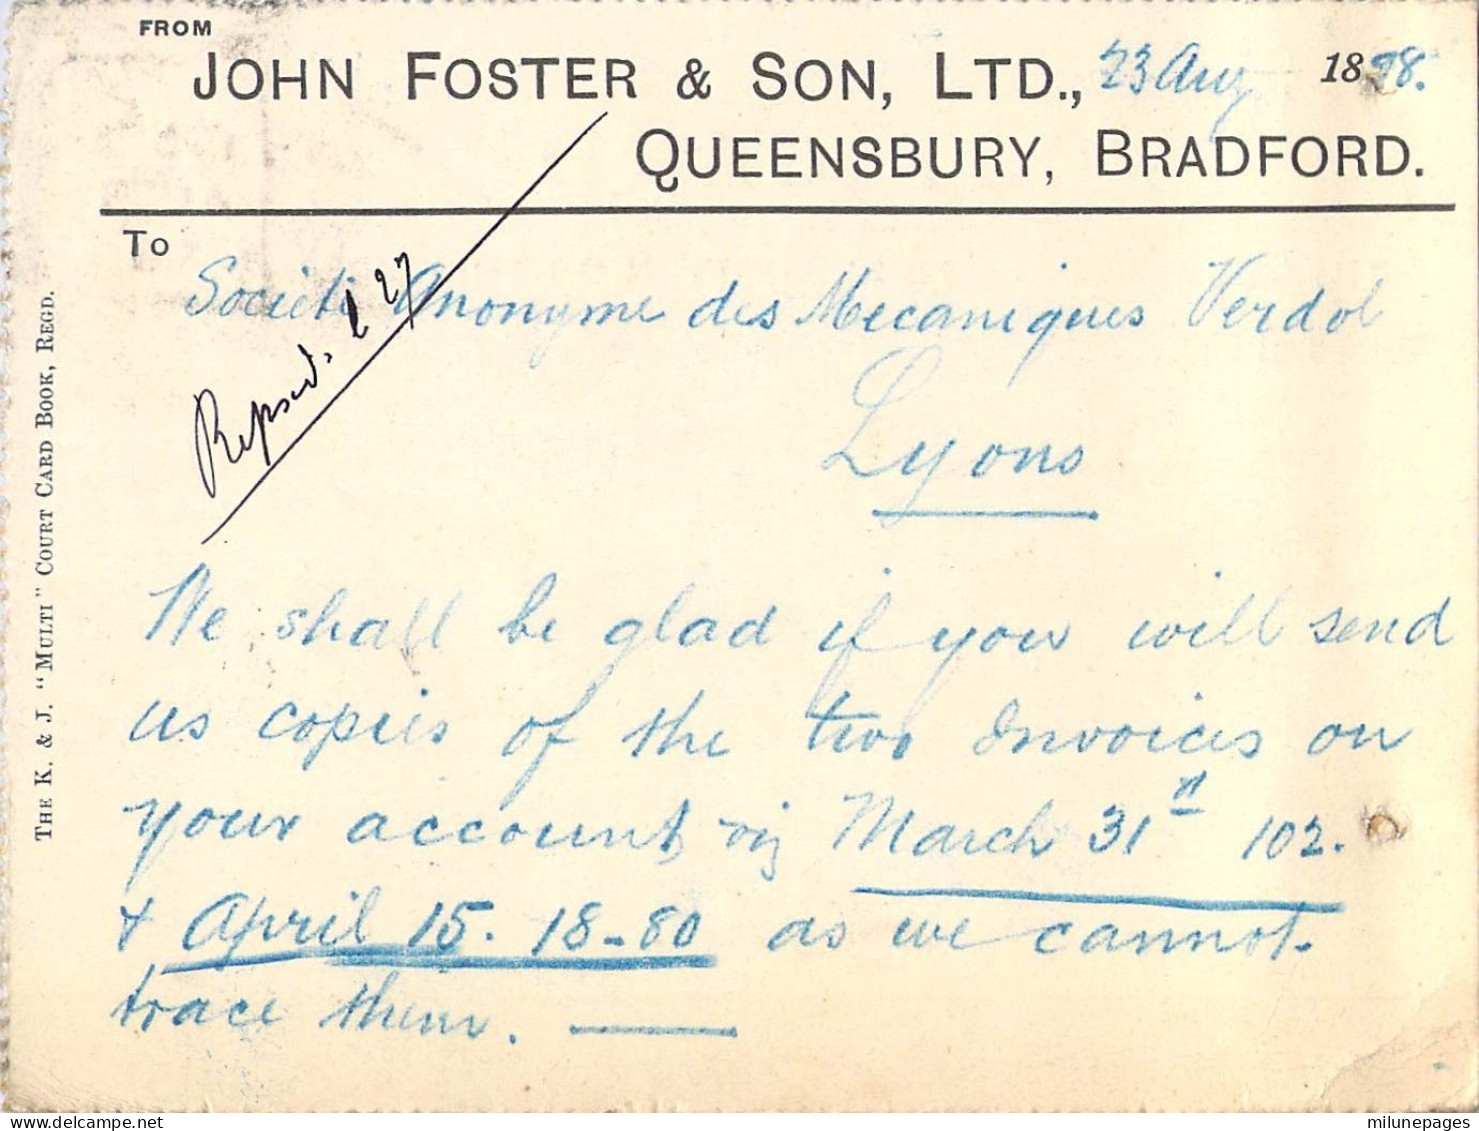 FROM
JOHN FOSTER & SON, LTD., 23 Aug 1898.
QUEENSBURY, BRADFORD.
TO
Societi Anonyme des Mecaniques Verdol
Lyons
27
We shall be glad if you will send
us copies of the two Invoices on
your account, viz March 31st 102.
& April 15. 18-80 as we cannot
trace them.
THE K. & J. "MULTI" COURT CARD BOOK, REGD.
milunepages